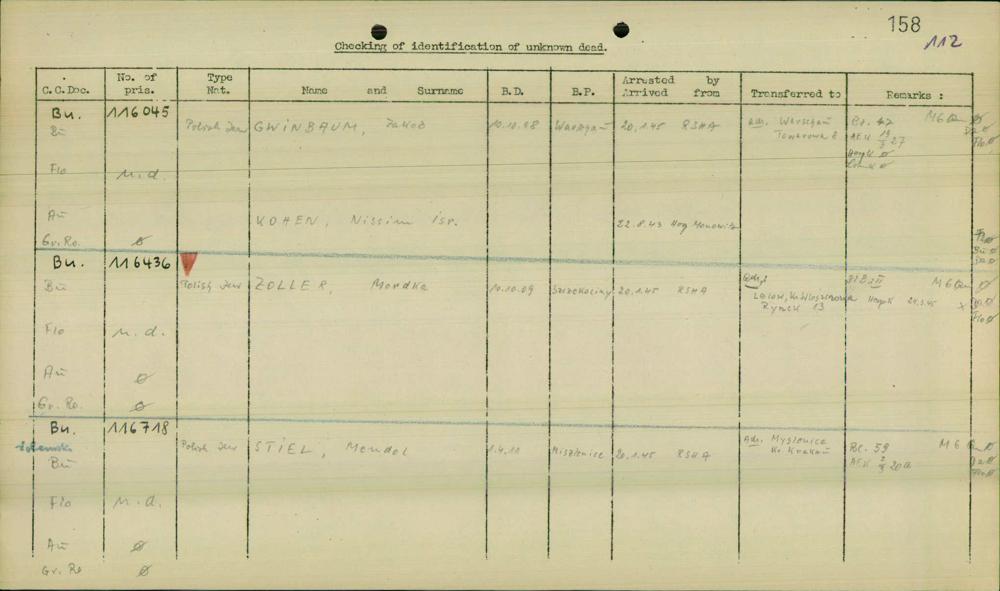 158
112
Checking of identification of unknown dead.
C.C.Doc. No. of pris. Type Nat. Name and Surname B.D. B.P. Arrested by Arrived from Transferred to Remarks :
Bu. 116045
Bu Polish Jew GWINBAUM, Jakob 10.10.98 Warschau 20.1.45 RSHA Adr. Warschau Bl. 47 M6
Towarowa 8
Flo n.d.
Au KOHEN, Nissim Isr. 22.8.43 Monowitz
Gr.Ro. ø
Bu. 116436
Bu Polish Jew ZOLLER, Mordka 10.10.09 Szczekociny 20.1.45 RSHA Adr. M6
Rynek 13
Flo n.d.
Au ø
Gr.Ro. ø
Bu. 116718
Bu Polish Jew STIEL, Mendel 1.4.11 Miszlenice 20.1.45 RSHA Adr. Myslenice Bl. 59 M6
Kr. Krakau
Flo n.d.
Au ø
Gr. Ro ø